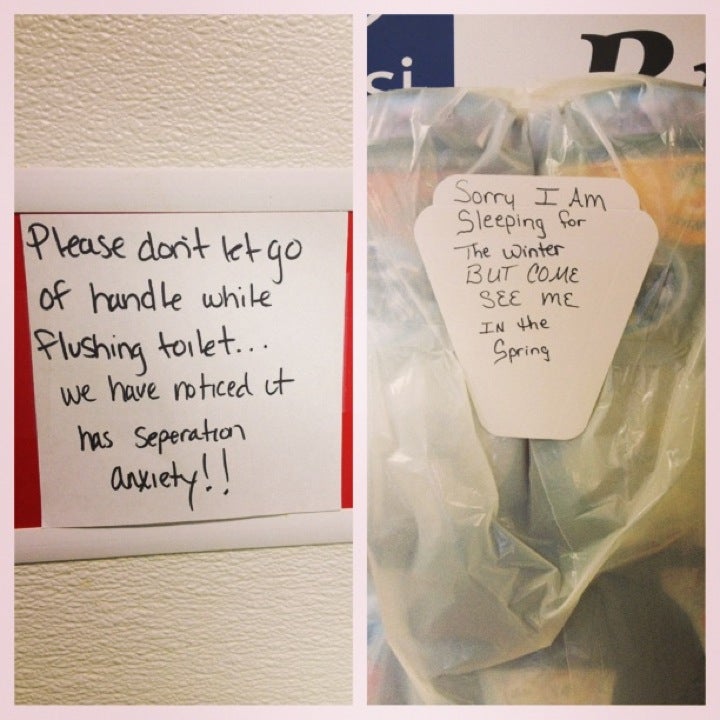 Please don't let go
of handle while
flushing toilet...
we have noticed it
has seperation
anxiety!!
si
Sorry I Am
Sleeping for
The winter
BUT COME
SEE ME
IN the
Spring